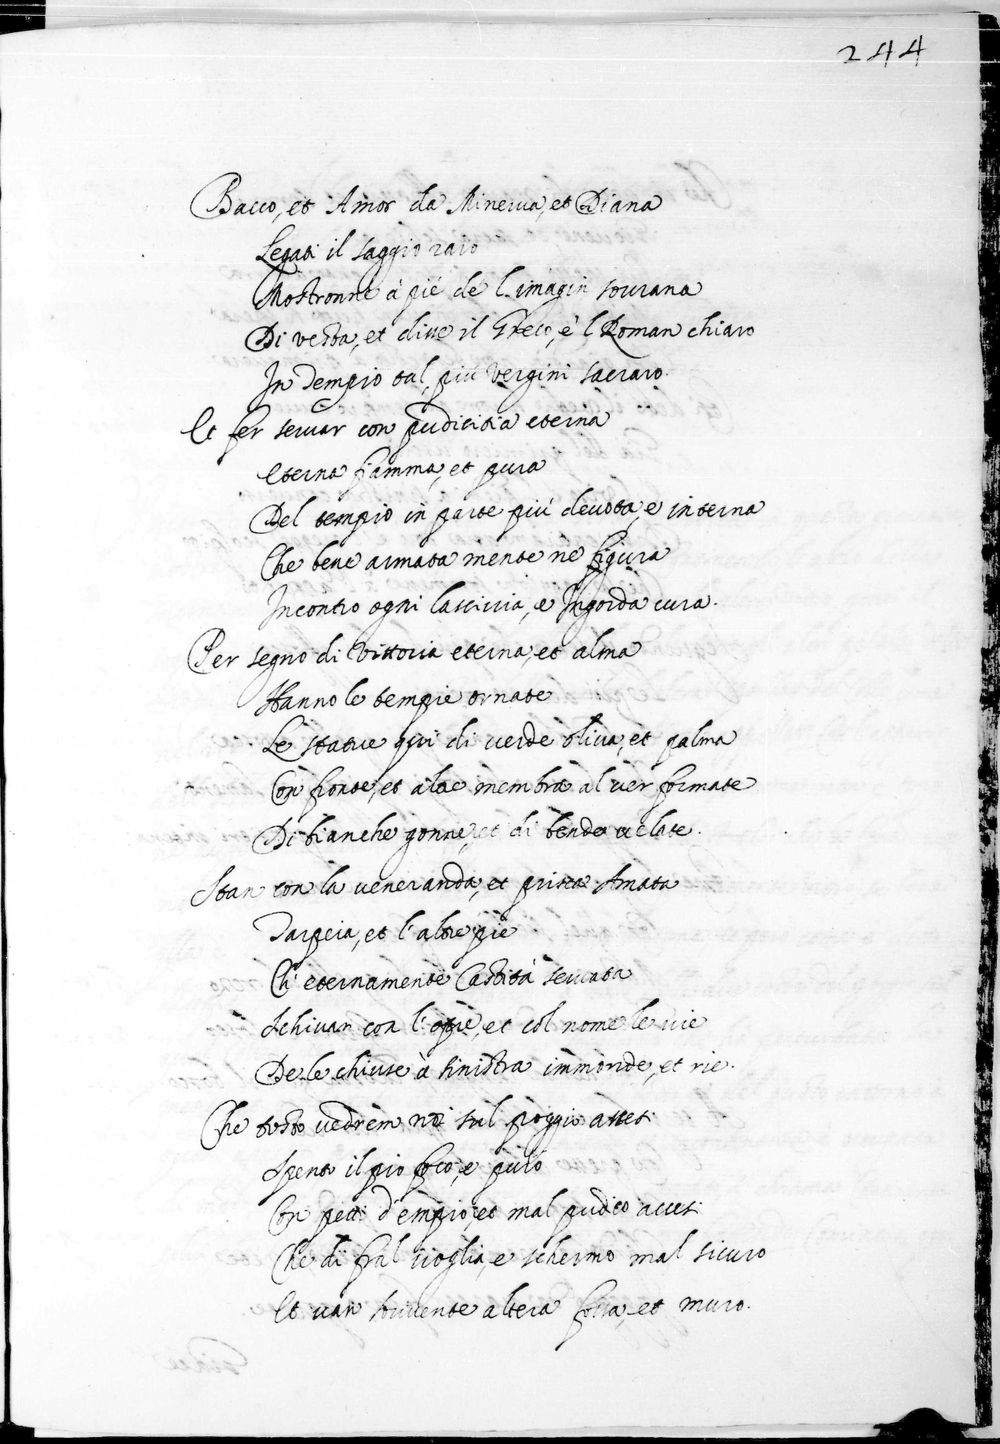 244
Bacco, et Amor da Minerua, et Diana
Legati il saggio raro
Mostronne à pié de l'imagin sourana
Di vesta, et disse il Greco, è l Roman chiaro
In Tempio tal, più Vergini sacraro.
Et fer seruar con pudicitia eterna
Eterna fiamma, et pura
Del tempio in parte più deuota, e interna
Che bene armata mente ne figura
Incontro ogni lasciuia, e Ingorda cura.
Per segno di vittoria eterna, et alma
Hanno le tempie ornate
Le statue qui di uerde oliua, et palma
Con fronte, et altre membra al ver formate
Di bianche gonne, et di bende uelate.
Stan con la ueneranda, et prisca Amata
Tarpeia, et l'altre pie
Ch' eternamente Castità seruata
Schiuar con l'opre, et col nome le uie
De le chiuse à sinistra immonde, et rie.
Che tosto vedrem noi sul poggio attesi
Spento il pio foco, e puro
Con petti d'empio, et mal pudico accesi
Che di fral uoglia, e schermo mal sicuro
Et uan souuente altera fossa, et muro.